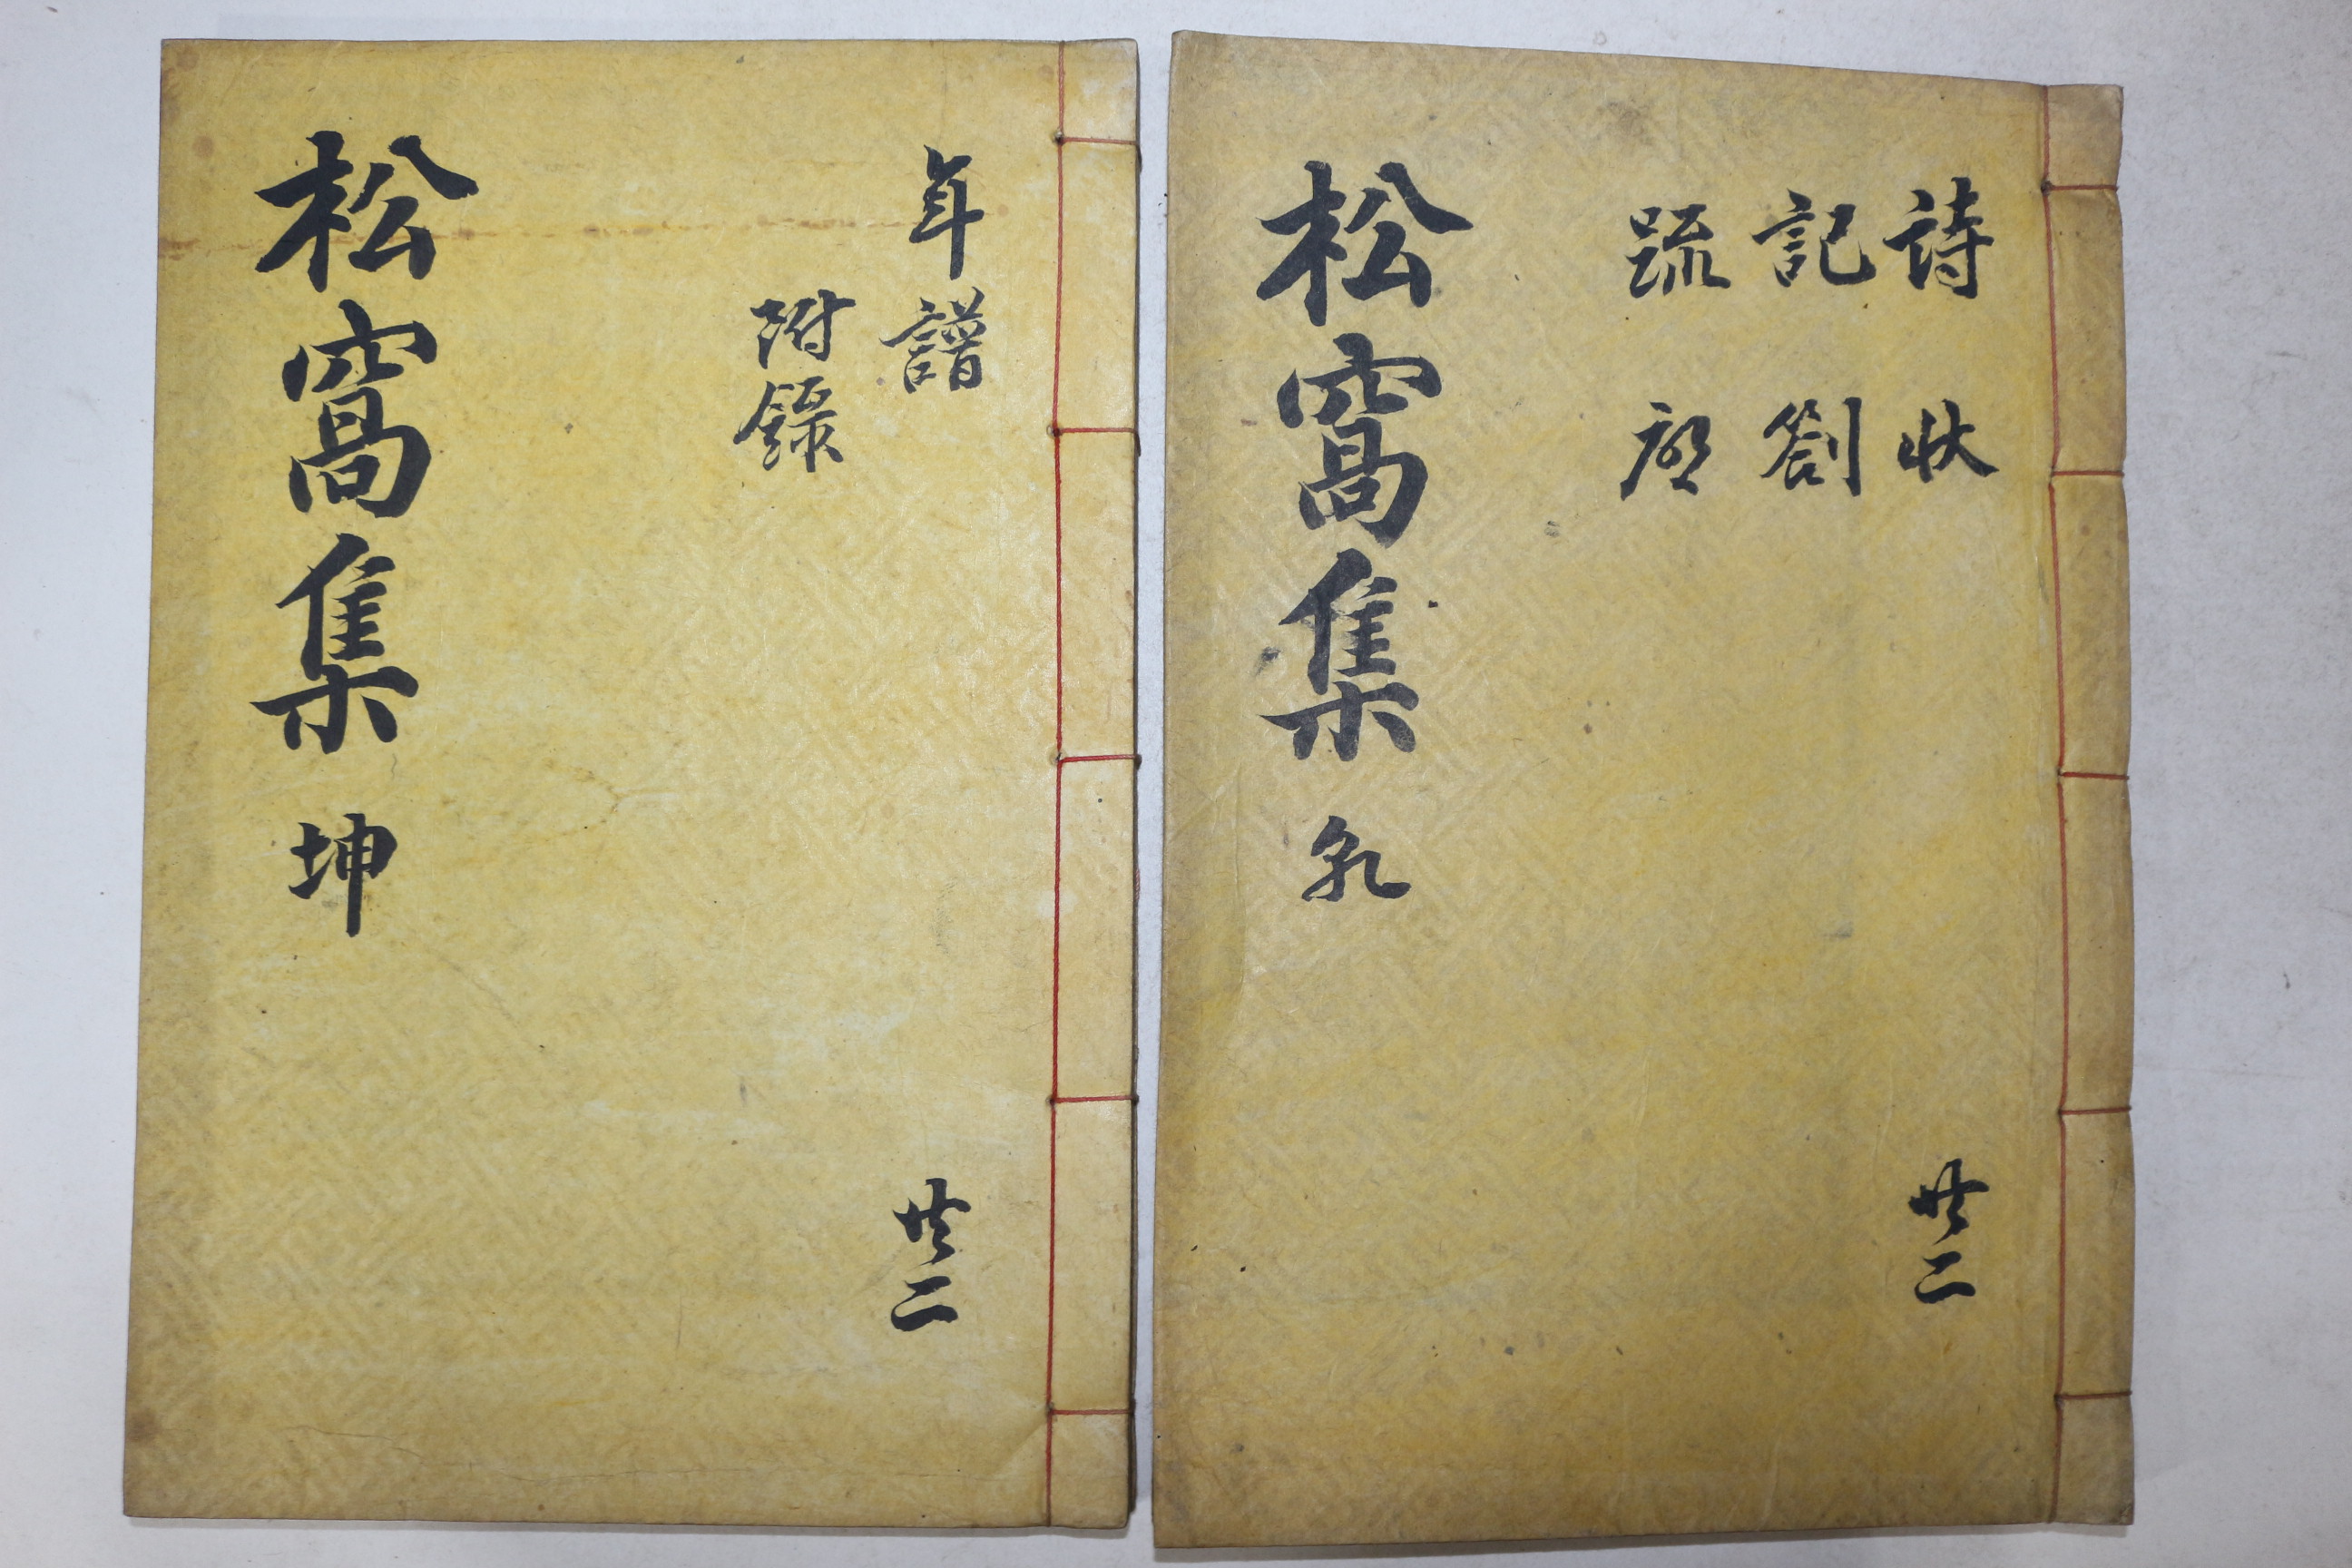 詩 狀
記 劄
䟽
松窩集 乾
共二
年譜
附錄
松窩集 坤
共二